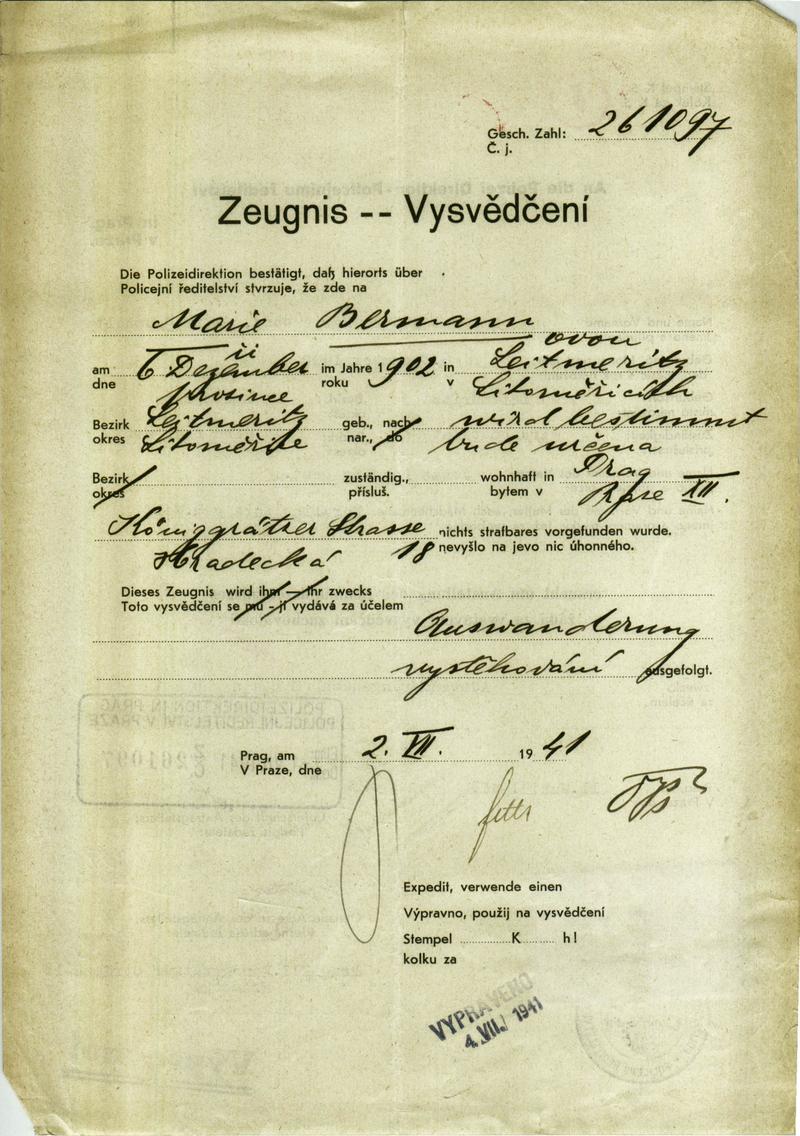 Gesch. Zahl: 261097
Č. j.
Zeugnis -- Vysvědčení
Die Polizeidirektion bestätigt, daß hierorts über
Policejní ředitelství stvrzuje, že zde na
Marie Bermann
ii ovou
am 6 Dezember im Jahre 1902 in Leitmeritz
dne prosince roku v Litoměřicích
Bezirk Leitmeritz geb., nach wird bestimmt
okres Litoměřice nar., do bude určena
Bezirk zuständig., wohnhaft in Prag
okres přísluš. bytem v Praze XII.
Königgrätzer Strasse nichts strafbares vorgefunden wurde.
Hradecká 18 nevyšlo na jevo nic úhonného.
Dieses Zeugnis wird ihm — ihr zwecks
Toto vysvědčení se mu - jí vydává za účelem
Auswanderung
vystěhování ausgefolgt.
POLIZEIDIREKTION IN PRAG
POLICEJNÍ ŘEDITELSTVÍ V PRAZE
261097
Prag, am 2. VII. 1941
V Praze, dne
Expedit, verwende einen
Výpravno, použij na vysvědčení
Stempel K h!
kolku za
VYPRAVENO
4. VII. 1941